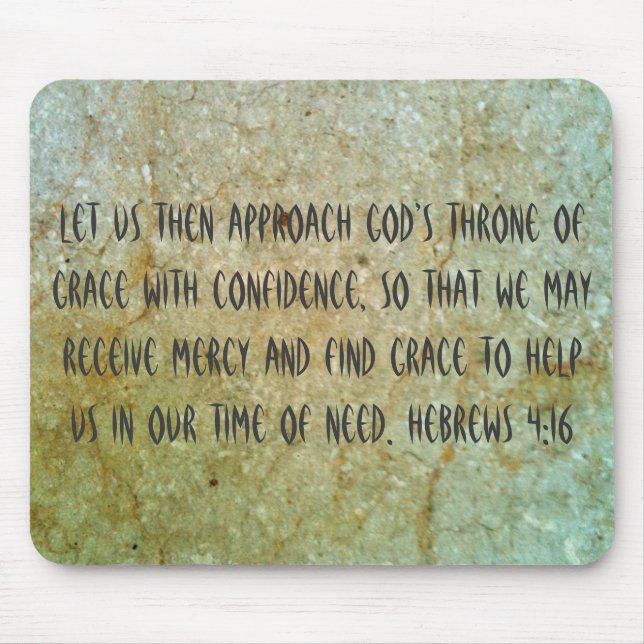 LET US THEN APPROACH GOD'S THRONE OF
GRACE WITH CONFIDENCE, SO THAT WE MAY
RECEIVE MERCY AND FIND GRACE TO HELP
US IN OUR TIME OF NEED. HEBREWS 4:16